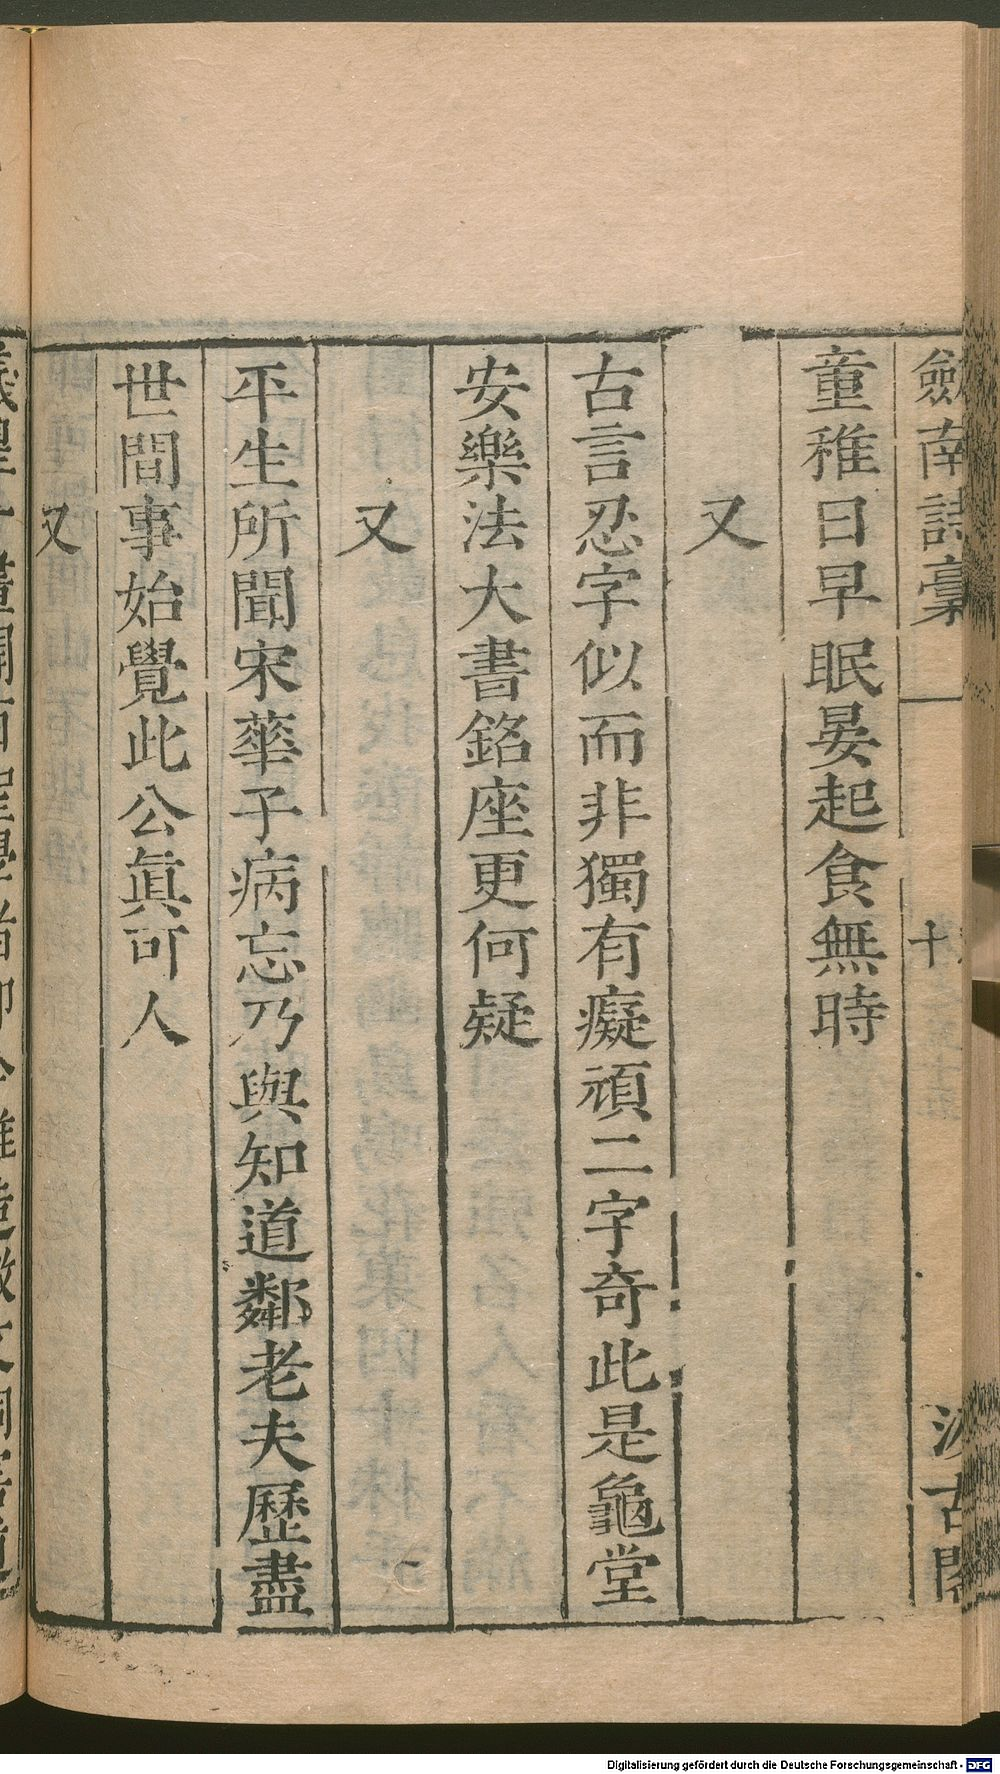 劒南詩稾
十
汲古閣
童稚日早眠晏起食無時
又
古言忍字似而非獨有癡頑二字奇此是龜堂
安樂法大書銘座更何疑
又
平生所聞宋華子病忘乃與知道鄰老夫歷盡
世間事始覺此公眞可人
又
Digitalisierung gefördert durch die Deutsche Forschungsgemeinschaft - DFG